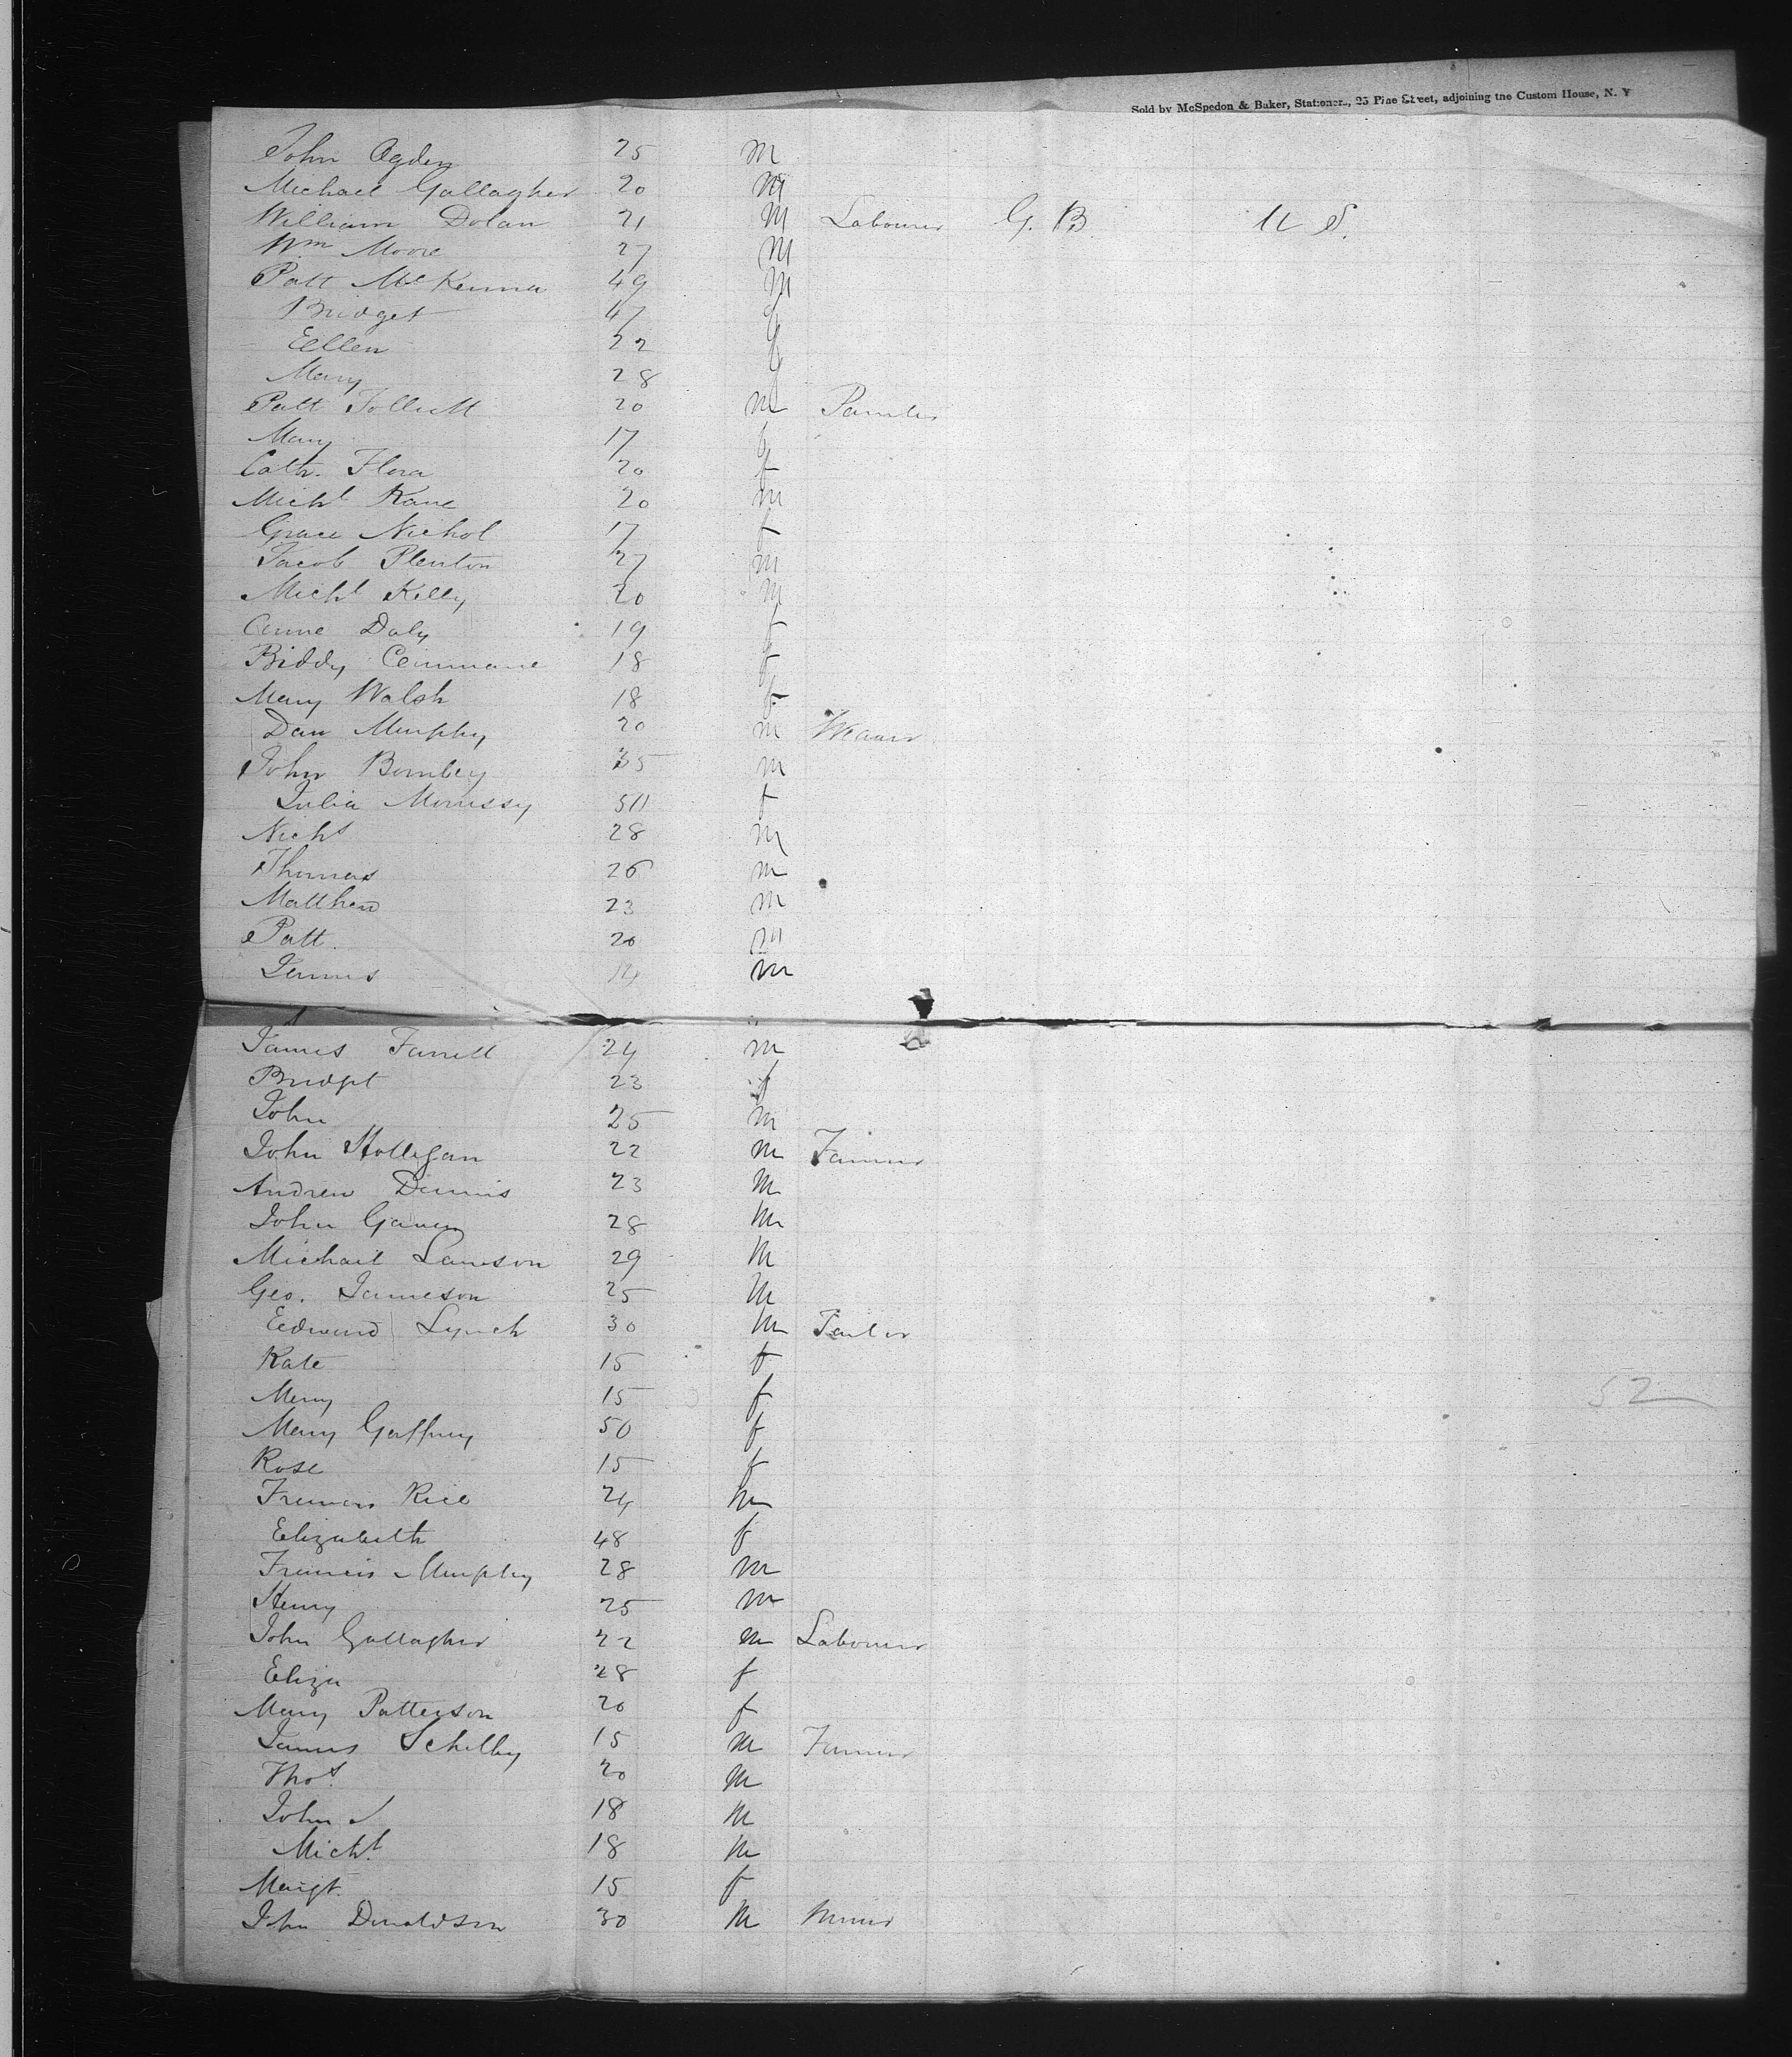 Sold by McSpedon & Baker, Stationers, 25 Pine Street, adjoining the Custom House, N. Y
John Ogden 25 m
Michael Gallagher 20 m
William Dolan 21 M Labourer G. B. U S.
Wm Moore 27 M
Patt McKenna 49 M
Bridget 47 f
Ellen 22 f
Mary 28 f
Patt 20 m
Mary 17 f
Cath. Flora 20 f
Michl Kane 20 m
Grace Nichol 17 f
Jacob Plenton 27 m
Michl Kelly 20 m
Anne Daly 19 f
Biddy 18 f
Mary Walsh 18 f
Dan Murphy 20 m Weaver
John 35 m
Julia Morrissy 50 f
Nichs 28 m
Thomas 26 m
Matthew 23 m
Patt. 20 m
James 14 m
James Farrell 24 m
Bridget 23 f
John 25 m
John Holligan 22 m Farmer
Andrew Dennis 23 m
John 28 m
Michael 29 m
Geo. Jameson 25 m
Edward Lynch 30 m
Kate 15 f
Mary 15 f
52
Mary Gaffney 50 f
Rose 15 f
Francis Rice 24 m
Elizabeth 48 f
Francis Murphy 28 m
Henry 25 m
John Gallagher 22 m Labourer
Eliza 28 f
Mary Patterson 20 f
James Schelby 15 m Farmer
Thos. 20 m
John 18 m
Michl. 18 m
Margt. 15 f
John Donaldson 30 m Miner